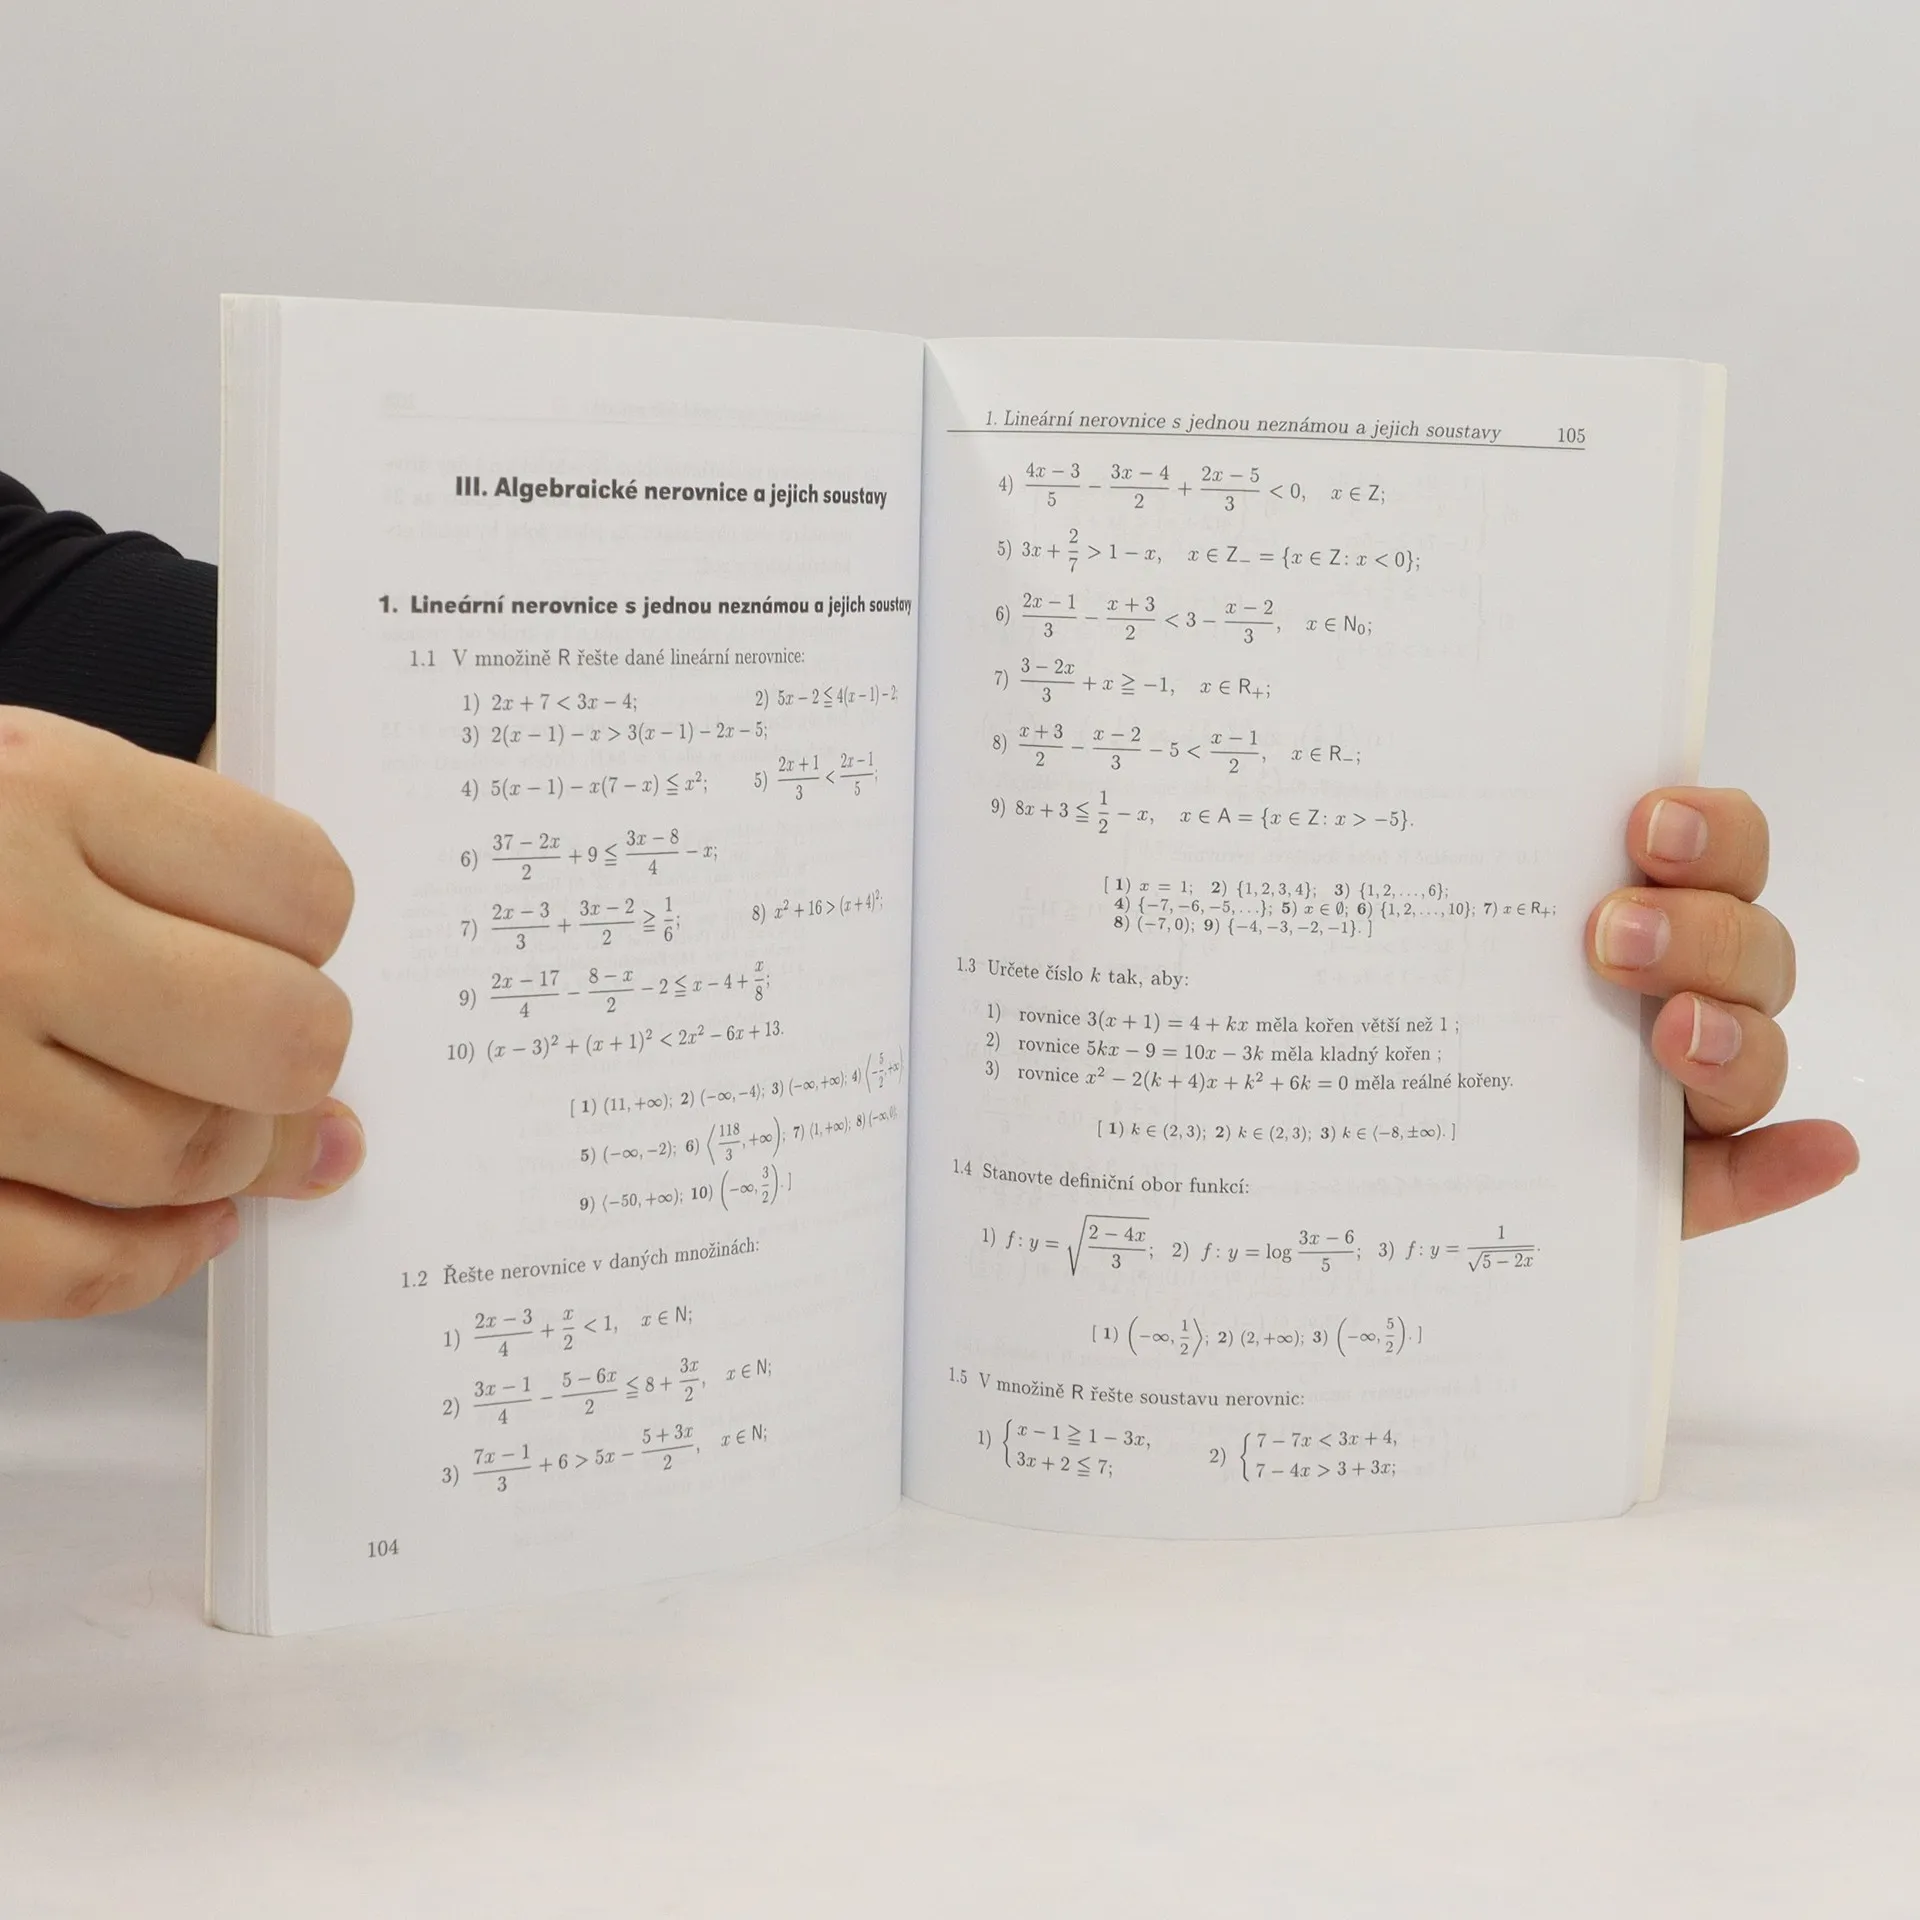 III. Algebraické nerovnice a jejich soustavy
1. Lineární nerovnice s jednou neznámou a jejich soustavy
1.1 V množině R řešte dané lineární nerovnice:
1) 2x + 7 < 3x − 4; 2) 5x − 2 ≦ 4(x − 1) − 2;
3) 2(x − 1) − x > 3(x − 1) − 2x − 5;
4) 5(x − 1) − x(7 − x) ≦ x²; 5) (2x + 1)/3 < (2x − 1)/5;
6) (37 − 2x)/2 + 9 ≦ (3x − 8)/4 − x;
7) (2x − 3)/3 + (3x − 2)/2 ≧ 1/6; 8) x² + 16 > (x + 4)²;
9) (2x − 17)/4 − (8 − x)/2 − 2 ≦ x − 4 + x/8;
10) (x − 3)² + (x + 1)² < 2x² − 6x + 13.
[ 1) (11, +∞); 2) (−∞, −4); 3) (−∞, +∞); 4) ⟨−5/2, +∞);
5) (−∞, −2); 6) ⟨118/3, +∞); 7) ⟨1, +∞); 8) (−∞, 0);
9) ⟨−50, +∞); 10) (−∞, 3/2). ]
1.2 Řešte nerovnice v daných množinách:
1) (2x − 3)/4 + x/2 < 1, x ∈ N;
2) (3x − 1)/4 − (5 − 6x)/2 ≦ 8 + 3x/2, x ∈ N;
3) (7x − 1)/3 + 6 > 5x − (5 + 3x)/2, x ∈ N;
104
1. Lineární nerovnice s jednou neznámou a jejich soustavy 105
4) (4x − 3)/5 − (3x − 4)/2 + (2x − 5)/3 < 0, x ∈ Z;
5) 3x + 2/7 > 1 − x, x ∈ Z₋ = {x ∈ Z: x < 0};
6) (2x − 1)/3 − (x + 3)/2 < 3 − (x − 2)/3, x ∈ N₀;
7) (3 − 2x)/3 + x ≧ −1, x ∈ R₊;
8) (x + 3)/2 − (x − 2)/3 − 5 < (x − 1)/2, x ∈ R₋;
9) 8x + 3 ≦ 1/2 − x, x ∈ A = {x ∈ Z: x > −5}.
[ 1) x = 1; 2) {1, 2, 3, 4}; 3) {1, 2, . . . , 6};
4) {−7, −6, −5, . . .}; 5) x ∈ ∅; 6) {1, 2, . . . , 10}; 7) x ∈ R₊;
8) (−7, 0); 9) {−4, −3, −2, −1}. ]
1.3 Určete číslo k tak, aby:
1) rovnice 3(x + 1) = 4 + kx měla kořen větší než 1 ;
2) rovnice 5kx − 9 = 10x − 3k měla kladný kořen ;
3) rovnice x² − 2(k + 4)x + k² + 6k = 0 měla reálné kořeny.
[ 1) k ∈ (2, 3); 2) k ∈ (2, 3); 3) k ∈ ⟨−8, ±∞). ]
1.4 Stanovte definiční obor funkcí:
1) f: y = √((2 − 4x)/3); 2) f: y = log (3x − 6)/5; 3) f: y = 1/√(5 − 2x).
[ 1) (−∞, 1/2⟩; 2) (2, +∞); 3) (−∞, 5/2). ]
1.5 V množině R řešte soustavu nerovnic:
1) { x − 1 ≧ 1 − 3x, 2) { 7 − 7x < 3x + 4,
3x + 2 ≦ 7; 7 − 4x > 3 + 3x;